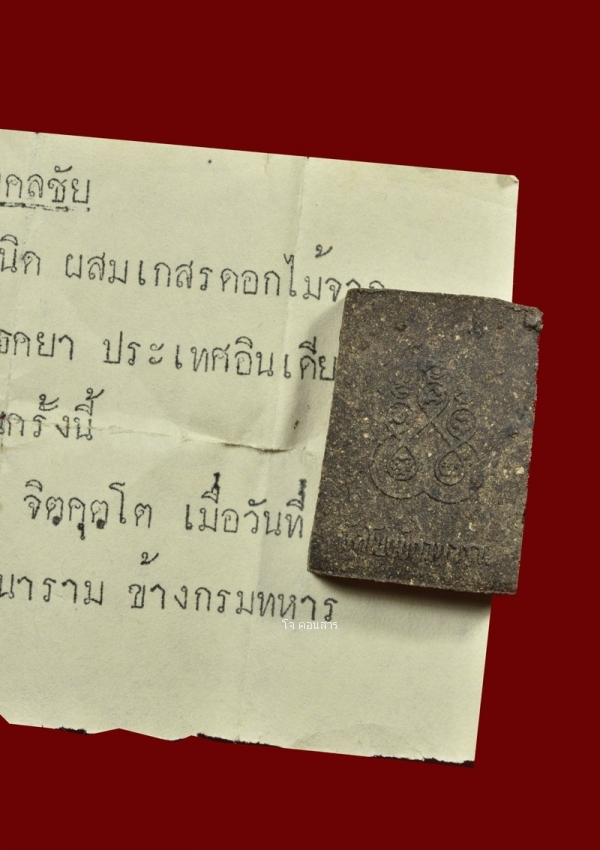 คลชัย
นิด ผสมเกสรดอกไม้จาก
ธคยา ประเทศอินเดีย
ครั้งนี้
จิตคุตโต เมื่อวันที่
นาราม ข้างกรมทหาร
โจ คอนสาร